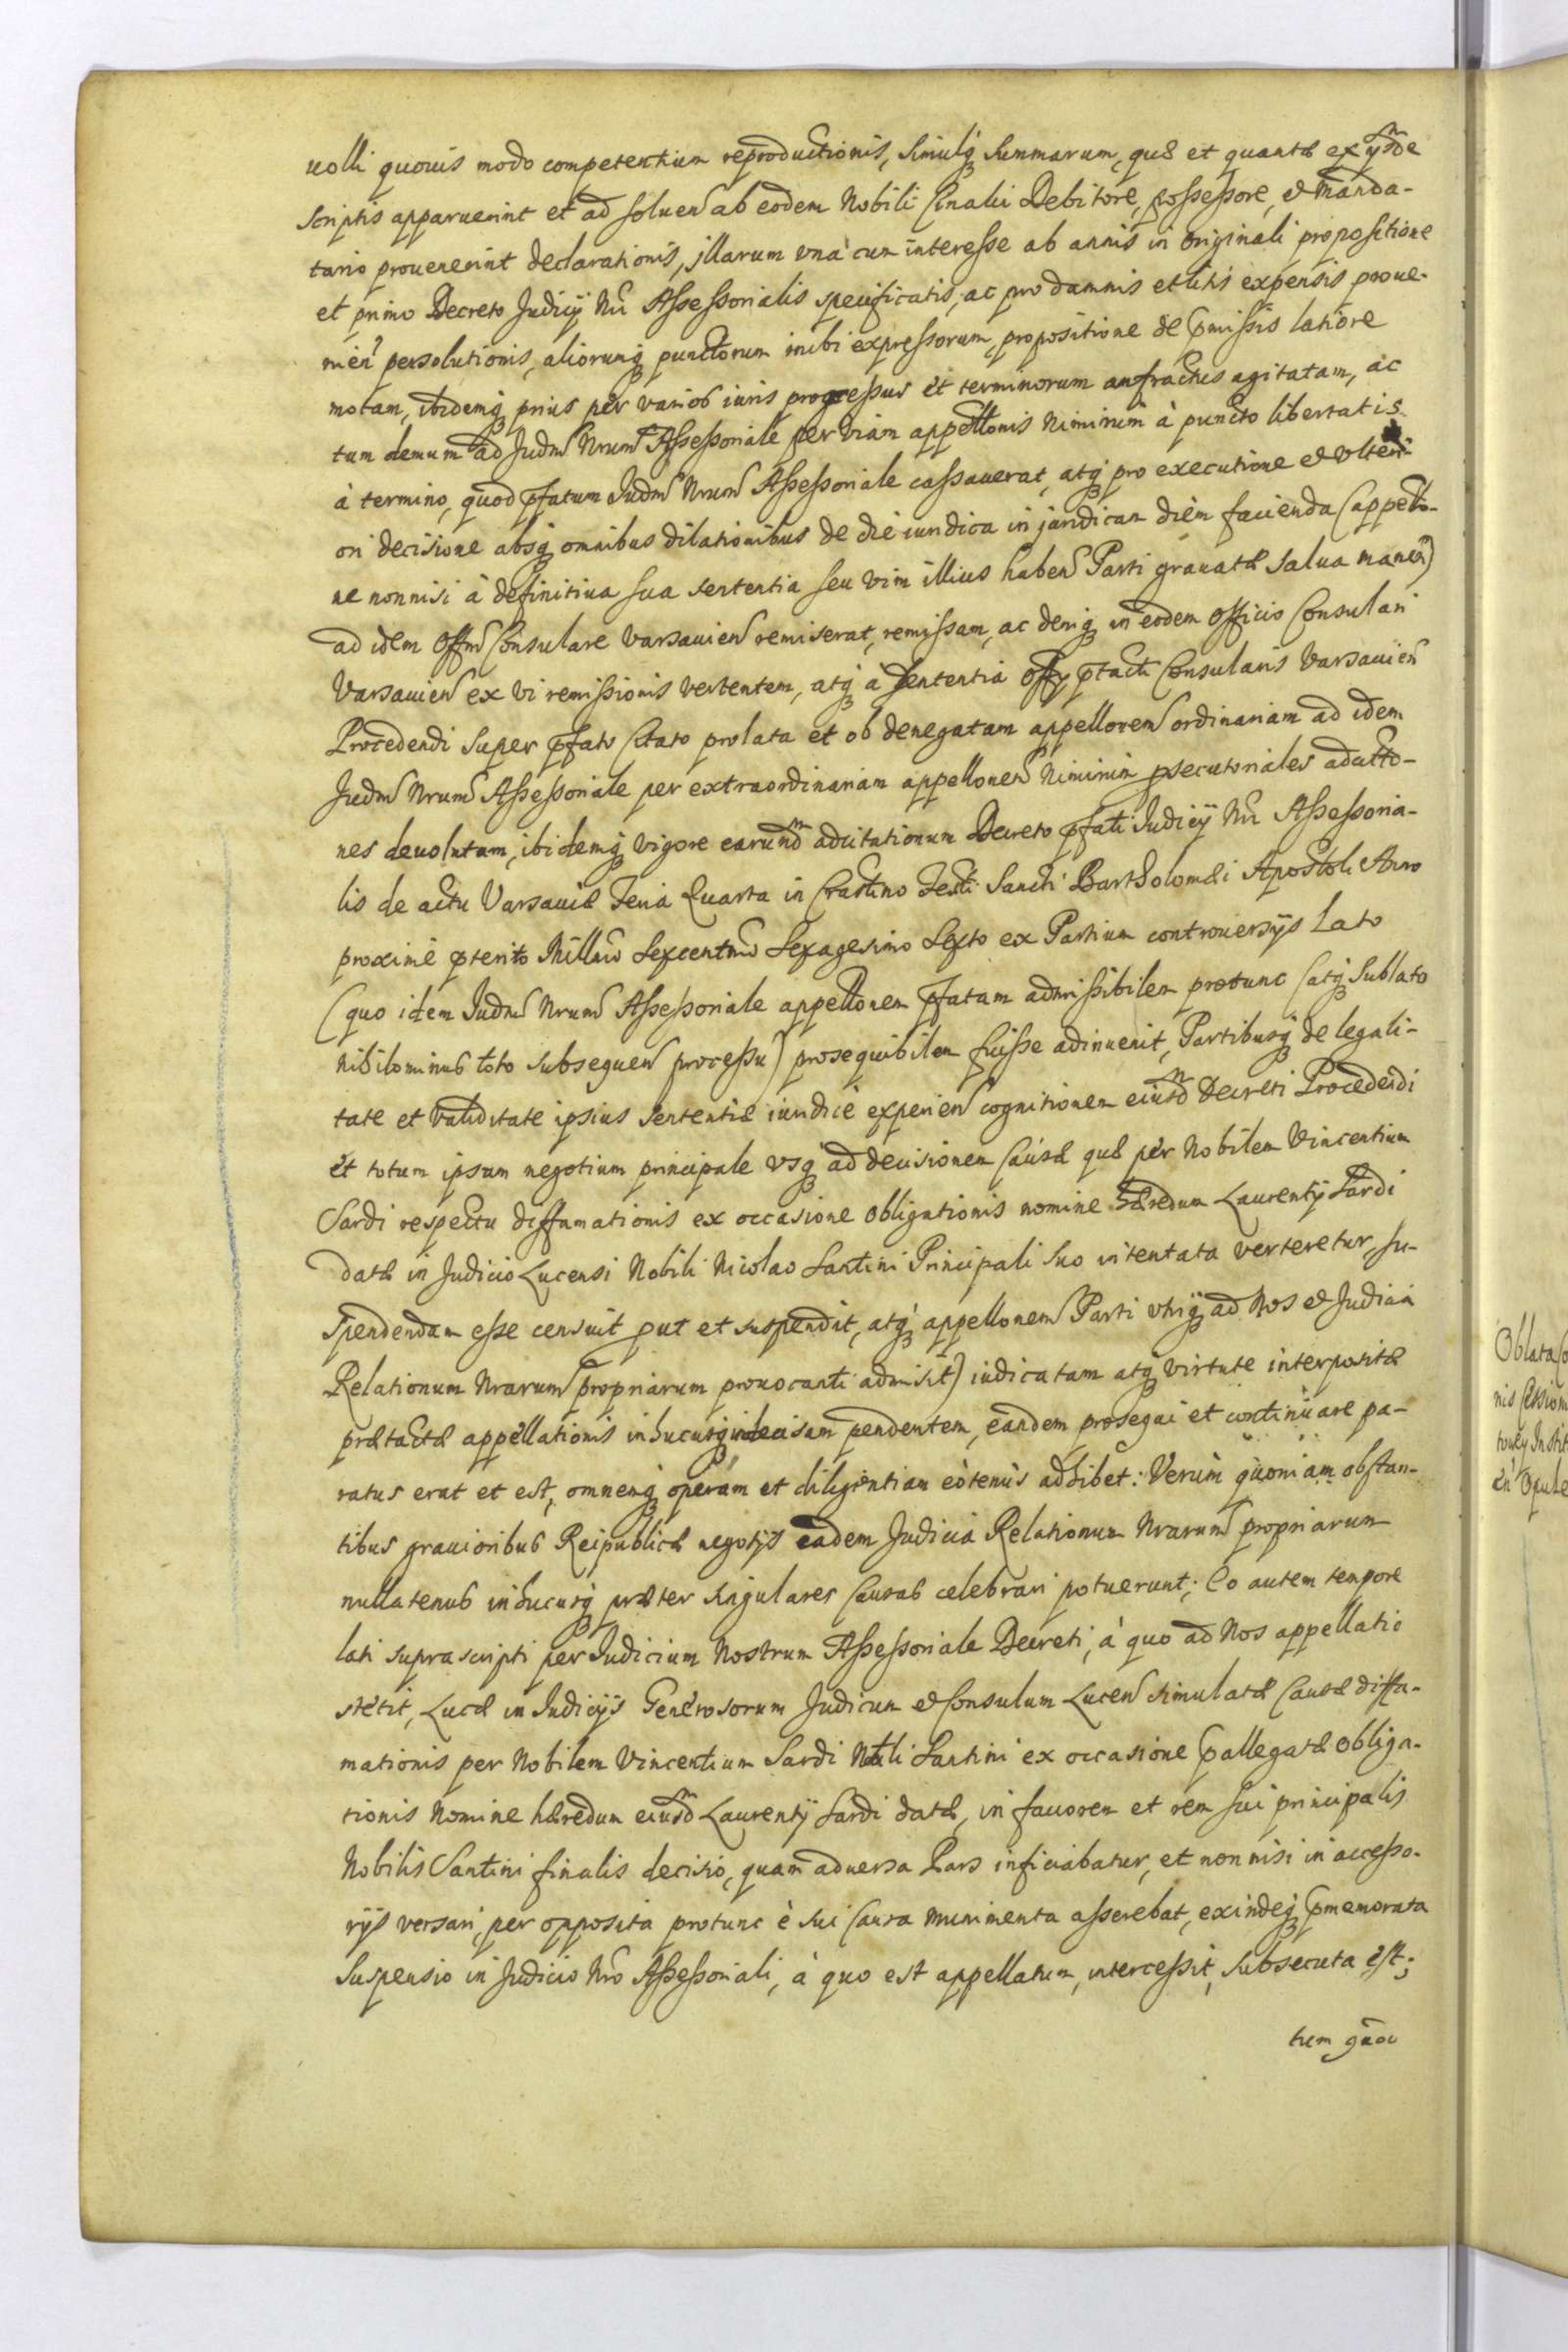 uolli quouis modo competentium reproductionis, simulq́ summarum, quæ et quantæ ex ijsdem
scriptis apparuerint et ad soluen ab eodem Nobili Cinalii Debitore, possessore, et Manda-
tario prouenerint declarationis, illarum vnà cum interesse ab annis in originali propositione
et primo Decreto Judicij Nri Assessorialis specificatis, ac pro damnis et litis expensis proue-
nien persolutionis, aliorumq́ punctorum inibi expressorum, propositione de pmissis latiore
motam, ibidemq́ prius per varios iuris progressus et terminorum anfractus agitatam, ac
tum demum ad Judm Nrum Assessoriale per viam appellonis nimirum à puncto libertatis
à termino, quod pfatum Judm Nrum Assessoriale cassauerat, atq́ pro executione et vlteri-
ori decisione absq́ omnibus dilationibus de die iuridica in juridicam diem facienda (appello-
ne nonnisi à definitiua sua sententia seu vim illius haben Parti grauatæ salua manen)
ad idem Offm Consulare Varsauien remiserat, remissam, ac deniq́ in eodem Officio Consulari
Varsauien ex vi remissionis vertentem, atq́ a sententia Offij ptacti Consularis Varsauien
Procedendi super pfato Citato prolata et ob denegatam appellonem ordinariam ad idem
Judm Nrum Assessoriale per extraordinariam appellonem nimirum psecutoriales adcitto-
nes deuolutam, ibidemq́ vigore earundm adcitationum Decreto pfati Judicij Nri Assessoria-
lis de actu Varsauiæ Feria Quarta in Crastino Festi Sancti Bartholomæi Apostoli Anno
proximè pterito Millmo Sexcentmo Sexagesimo Sexto ex Partium controuersijs Lato
(quo idem Judm Nrum Assessoriale appellonem pfatam admissibilem protunc (atq́ sublato
nihilominus toto subsequen processu) prosequibilem fuisse adinuenit, Partibusq́ de legali-
tate et validitate ipsius sententiæ iuridicè experien cognitionem eiusdm Decreti Procedendi
et totum ipsum negotium principale vsq́ ad decisionem Causæ quæ per Nobilem Vincentium
Sardi respectu diffamationis ex occasione obligationis nomine Hæredum Laurentij Sardi
datæ in Judicio Lucensi Nobili Nicolao Santini Principali suo intentata verteretur, su-
spendendam esse censuit put et suspendit, atq́ appellonem Parti vtriq́ ad Nos et Judicia
Relationum Nrarum propriarum prouocanti admisit) iudicatam atq́ virtute interpositæ
prætactæ appellationis inhucusq́ indecisam pendentem, eandem prosequi et continuare pa-
ratus erat et est, omnemq́ operam et diligentiam eòtenùs adhibet: Verùm quoniam obstan-
tibus grauioribus Reipublicæ negotijs eadem Judicia Relationum Nrarum propriarum
nullatenus inhucusq́ præter singulares Causas celebrari potuerunt; Eo autem tempore
lati suprascripti per Judicium Nostrum Assessoriale Decreti, à quo ad Nos appellatio
stetit, Lucæ in Judicijs Generosorum Judicum et Consulum Lucen simulatæ Causæ diffa-
mationis per Nobilem Vincentium Sardi Nobili Santini ex occasione pallegatæ obliga-
tionis Nomine hæredum eiusdm Laurentij Sardi datæ, in fauorem et rem sui principalis
Nobilis Santini finalis decisio, quam aduersa Pars inficiabatur, et non nisi in accesso-
rijs versari, per opposita protunc è sui Causa munimenta asserebat, exindeq́ pmemorata
Suspensio in Judicio Nro Assessoriali, à quo est appellatum, intercessit, subsecuta est;
tum quoq
Oblata
nis Cession
Instit